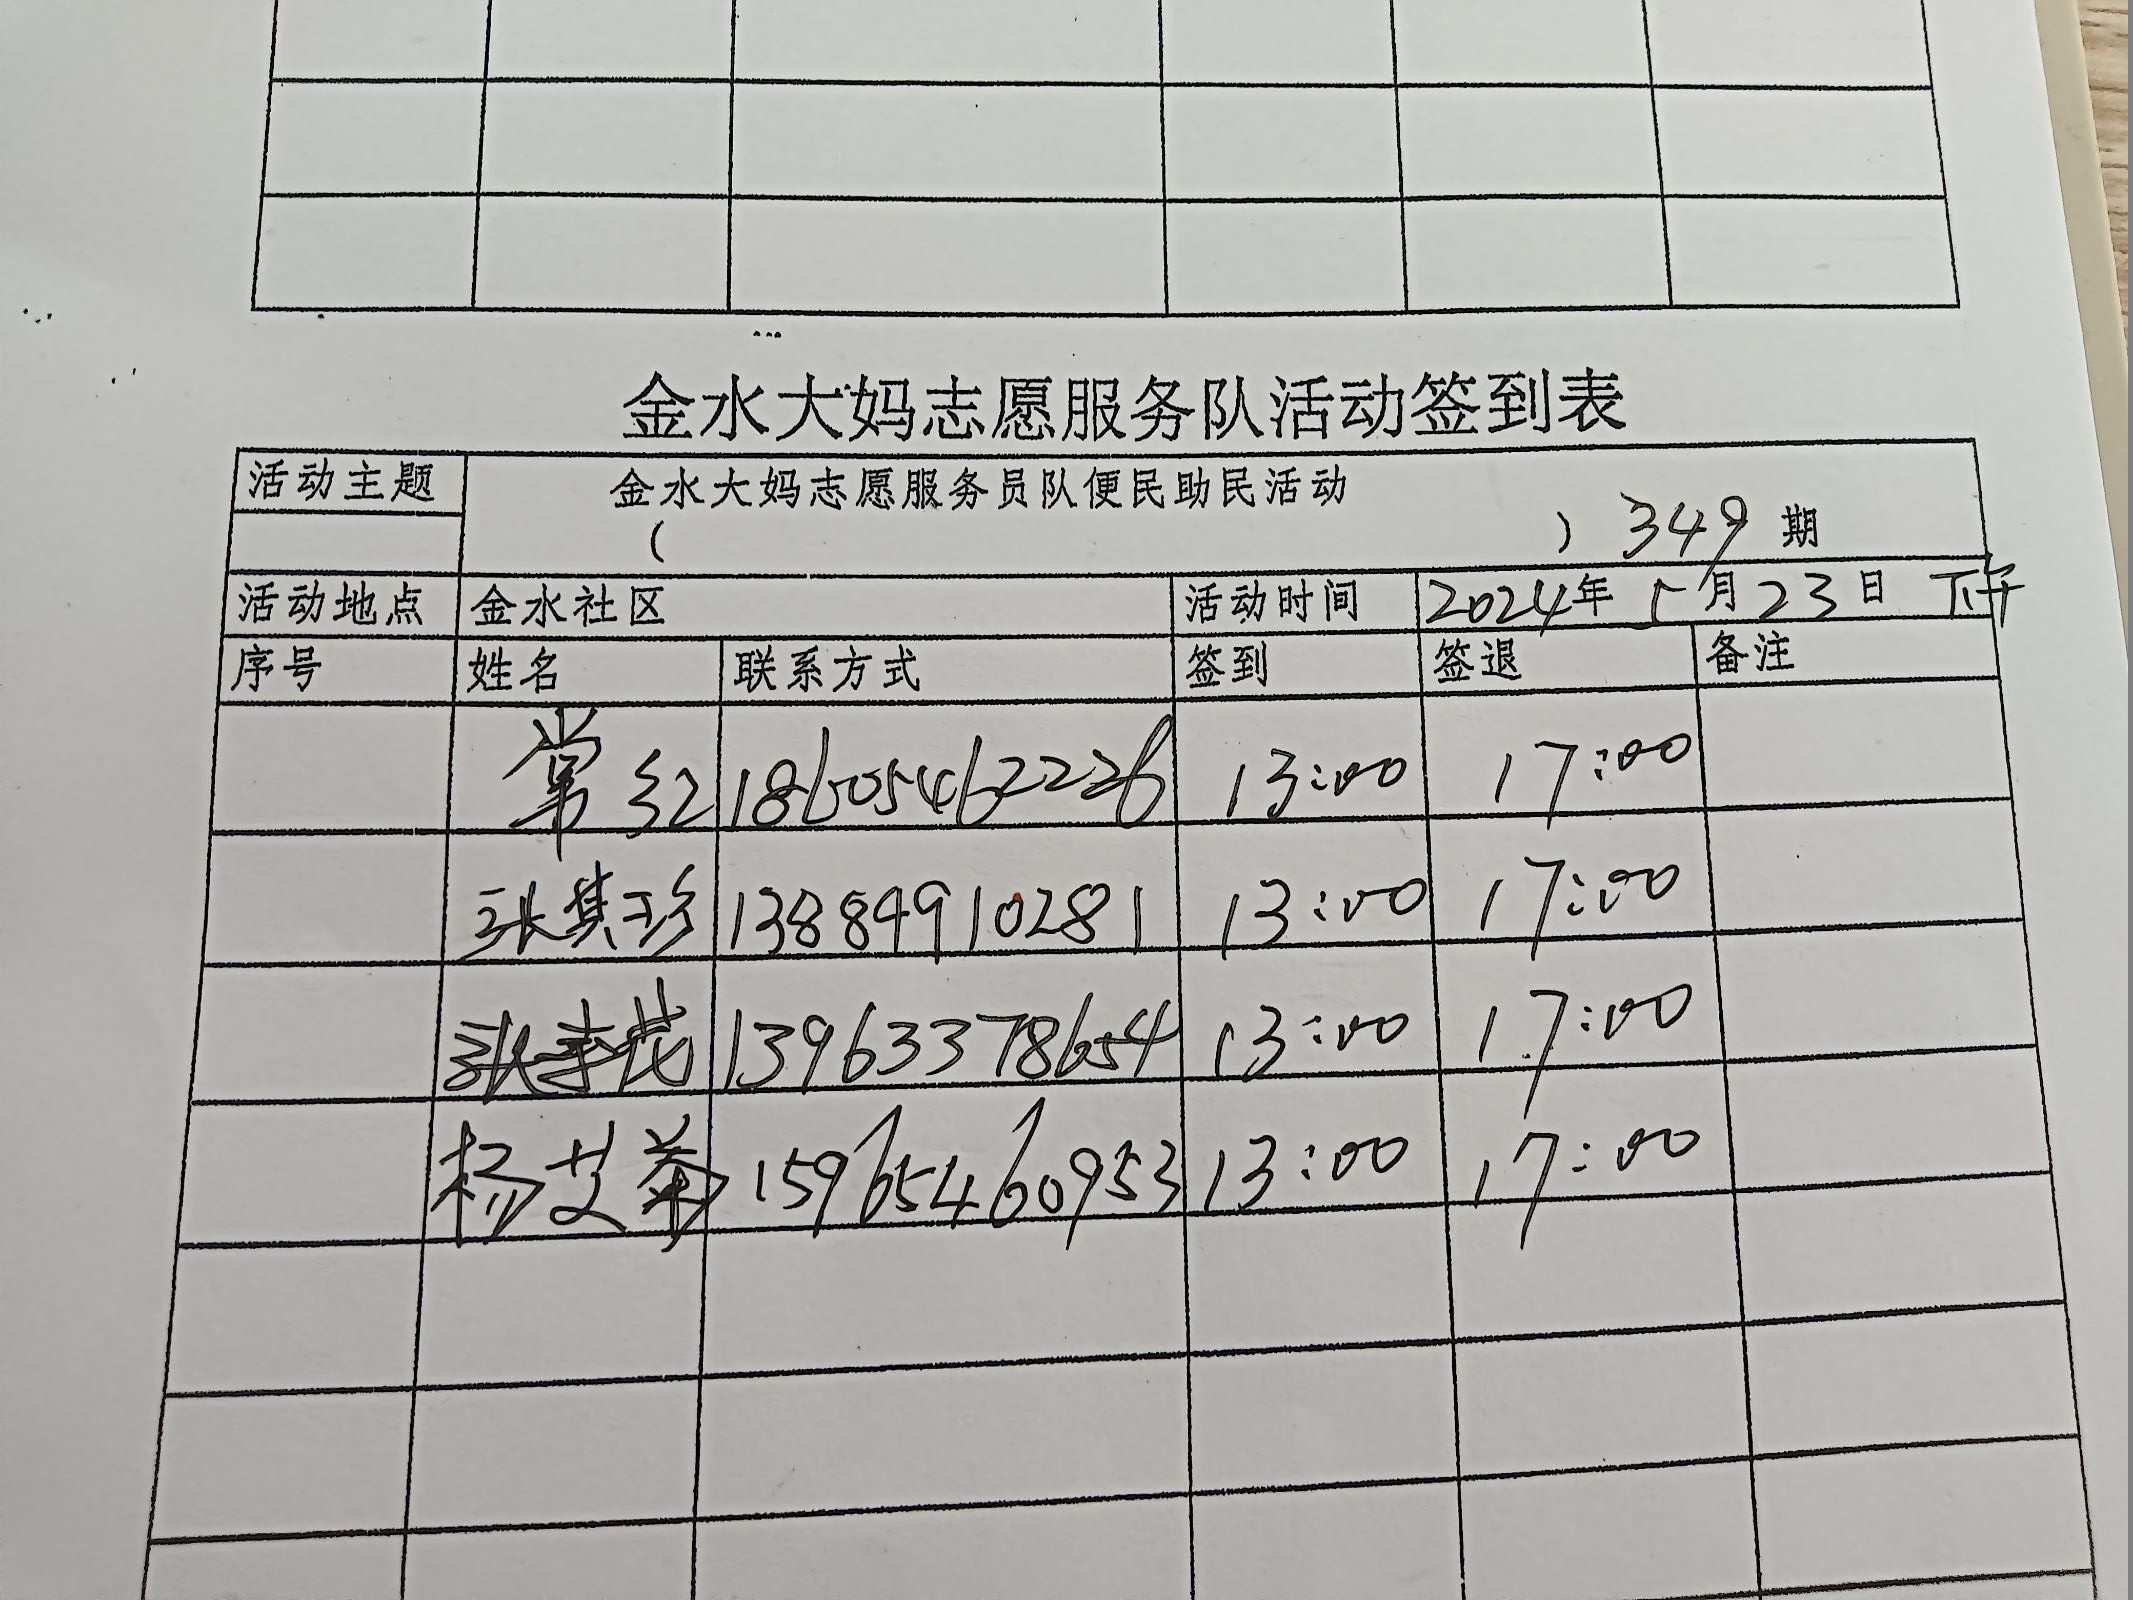 金水大妈志愿服务队活动签到表
活动主题 金水大妈志愿服务员队便民助民活动
( ) 349 期
活动地点 金水社区 活动时间 2024年 5月23日 下午
序号 姓名 联系方式 签到 签退 备注
常红 18605462226 13:00 17:00
张其珍 13884910281 13:00 17:00
张秀花 13963378654 13:00 17:00
杨艾菊 15965460953 13:00 17:00